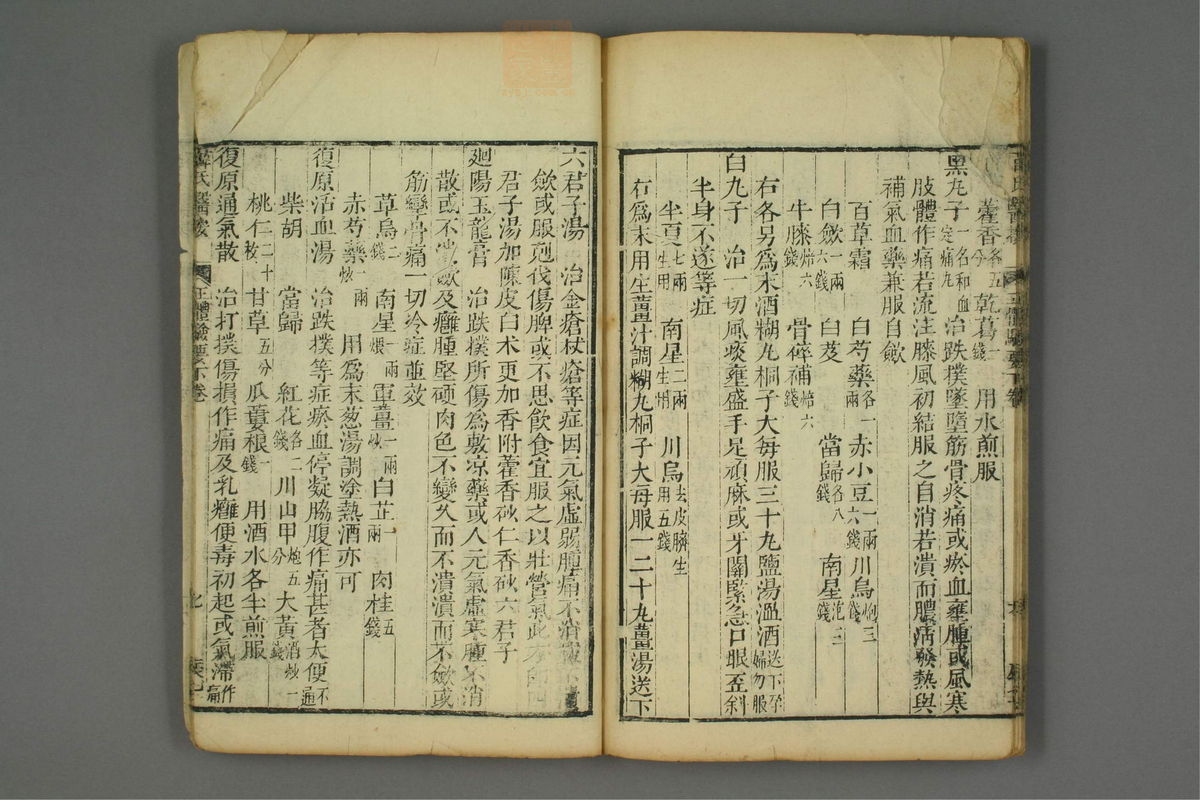 藿香各五分 乾葛二錢 用水煎服
黑丸子一名和血定痛丸 治跌撲墜墮筋骨疼痛或瘀血壅腫或風寒
肢體作痛若流注膝風初結服之自消若潰而膿清發熱與
補氣血藥兼服自斂
百草霜 白芍藥各一兩 赤小豆一兩六錢 川烏炮三錢
白斂一兩六錢 白芨 當歸各八錢 南星泡三錢
牛膝焙六錢 骨碎補焙六錢
右各另爲末酒糊丸桐子大每服三十丸鹽湯溫酒送下孕婦勿服
白丸子 治一切風痰壅盛手足頑麻或牙關緊急口眼歪斜
半身不遂等症
半夏七兩生用 南星二兩生用 川烏去皮臍生用五錢
右爲末用生薑汁調糊丸桐子大每服一二十丸薑湯送下
六君子湯 治金瘡杖瘡等症因元氣虛弱腫痛不消或不
斂或服剋伐傷脾或不思飲食宜服之以壯營氣此方卽四
君子湯加陳皮白术更加香附藿香砂仁香砂六君子
廻陽玉龍膏 治跌撲所傷爲敷凉藥或人元氣虛寒腫不消
散或不潰斂及癰腫堅硬肉色不變久而不潰潰而不斂或
筋攣骨痛一切冷症並效
草烏二錢 南星一兩煨 軍薑一兩炒 白芷一兩 肉桂五錢
赤芍藥一兩炒 用爲末葱湯調塗熱酒亦可
復原活血湯 治跌撲等症瘀血停凝脇腹作痛甚者大便不通
柴胡 當歸 紅花各二錢 川山甲炮五分 大黃酒炒一錢
桃仁二十枚 甘草五分 瓜蔞根一錢 用酒水各半煎服
復原通氣散 治打撲傷損作痛及乳癰便毒初起或氣滯作痛
薛氏醫按 正體類要下卷